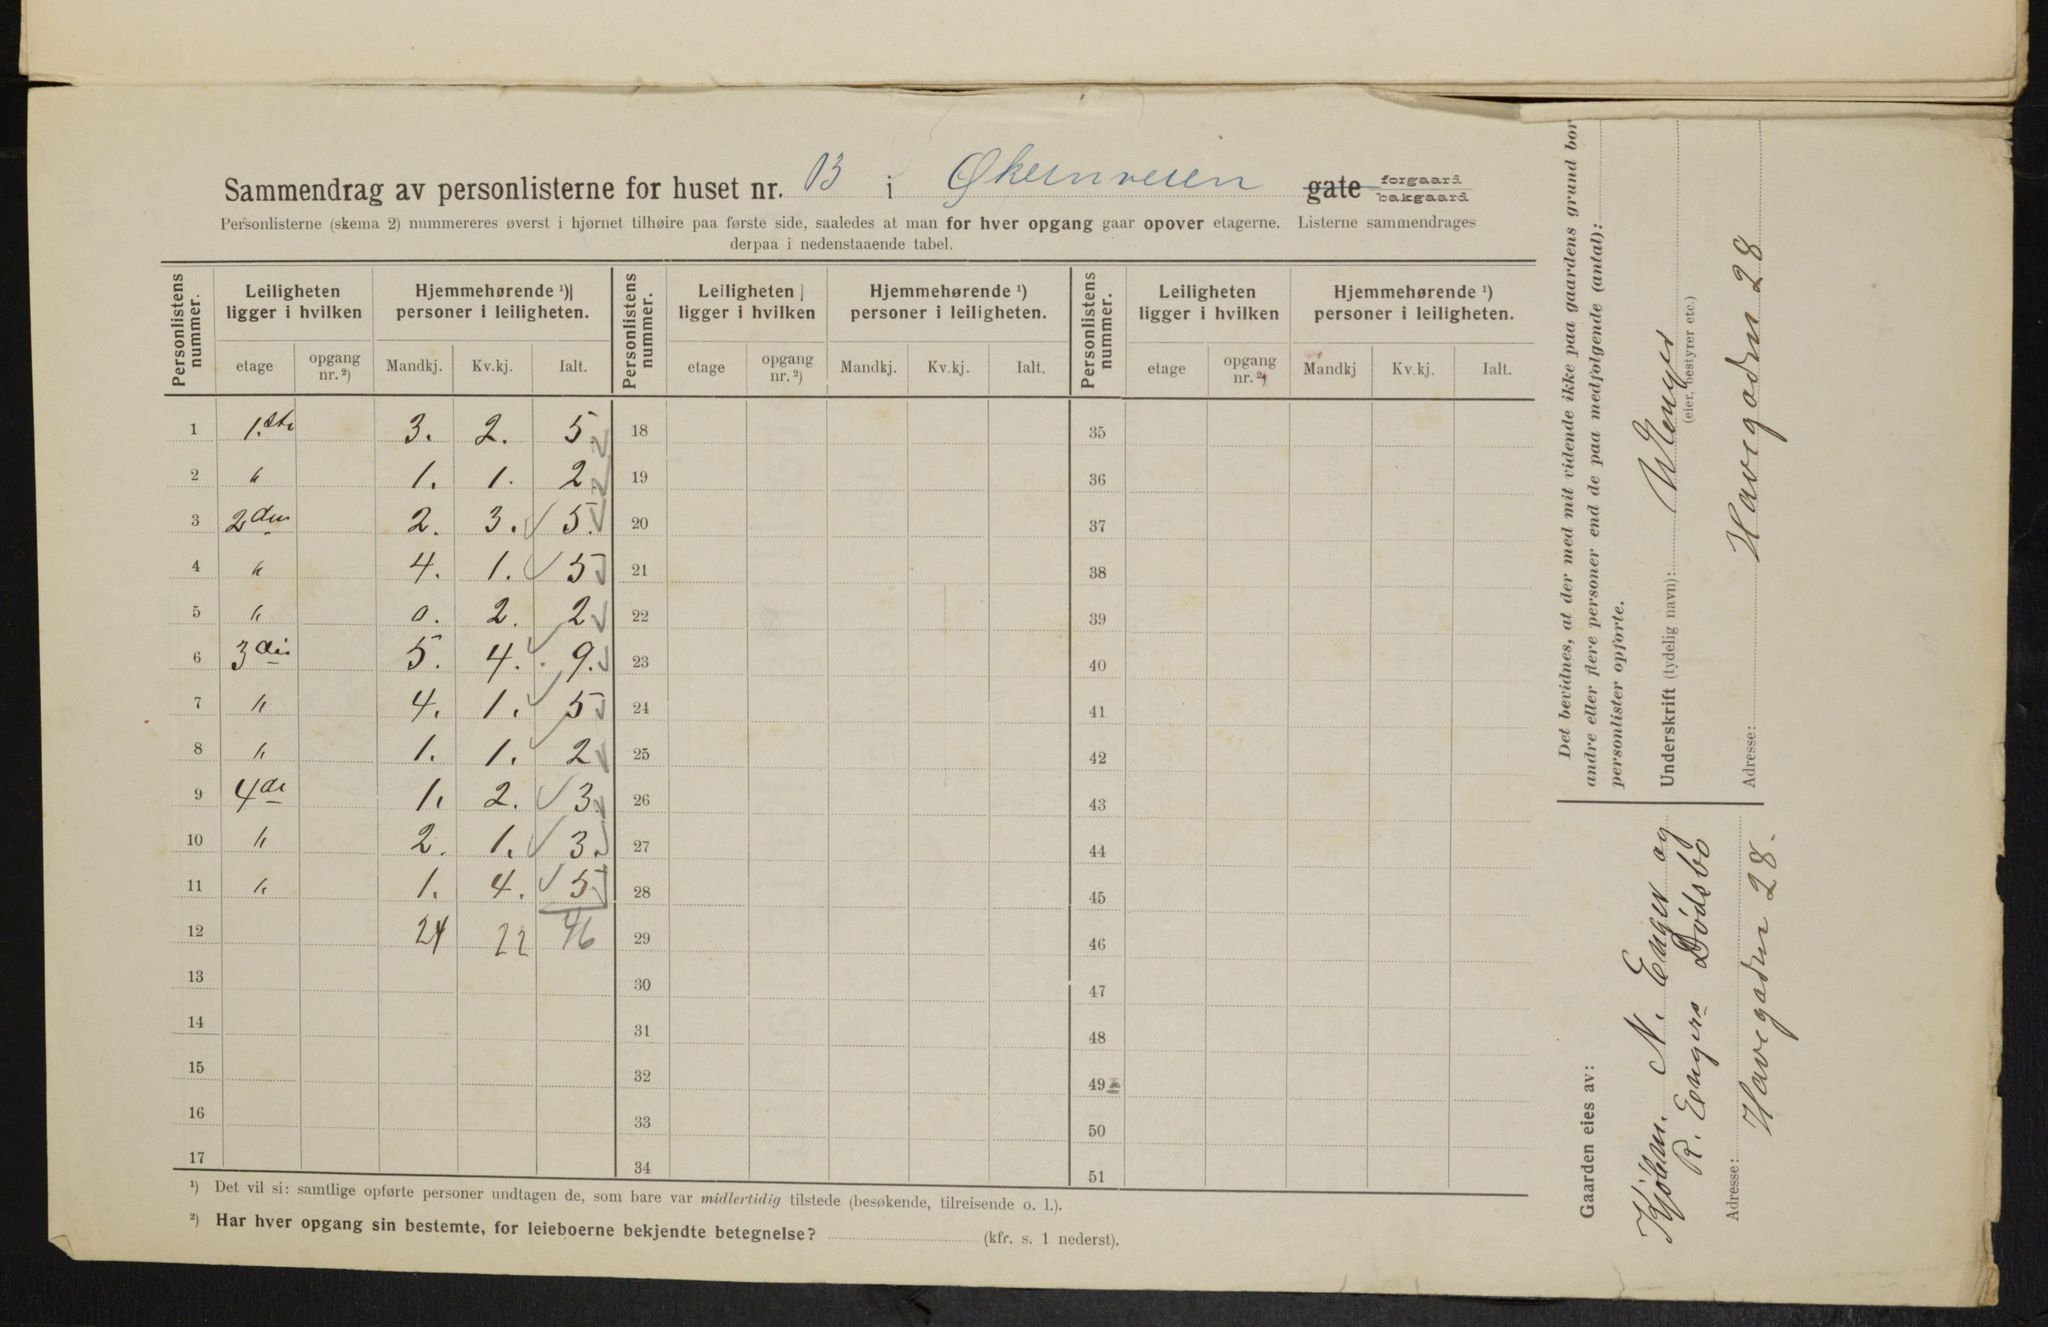 Sammendrag av personlisterne for huset nr. 13 i Økernveien gate forgaard bakgaard
Personlisterne (skema 2) nummereres øverst i hjørnet tilhøire paa første side, saaledes at man for hver opgang gaar opover etagerne. Listerne sammendrages
derpaa i nedenstaaende tabel.
Personlistens nummer. Leiligheten ligger i hvilken Hjemmehørende ¹) personer i leiligheten. Personlistens nummer. Leiligheten ligger i hvilken Hjemmehørende ¹) personer i leiligheten. Personlistens nummer. Leiligheten ligger i hvilken Hjemmehørende ¹) personer i leiligheten.
etage opgang nr. ²) Mandkj. Kv.kj. Ialt. etage opgang nr. ²) Mandkj. Kv.kj. Ialt. etage opgang nr. ²) Mandkj Kv.kj. Ialt.
1 1.ste 3. 2. 5. 18 35
2 " 1. 1. 2 19 36
3 2den 2. 3. 5. 20 37
4 " 4. 1. 5 21 38
5 " 0. 2. 2 22 39
6 3die 5. 4. 9. 23 40
7 " 4. 1. 5 24 41
8 " 1. 1. 2 25 42
9 4de 1. 2. 3. 26 43
10 " 2. 1. 3. 27 44
11 " 1. 4. 5 28 45
12 24 22 46 29 46
13 30 47
14 31 48
15 32 49
16 33 50
17 34 51
¹) Det vil si: samtlige opførte personer undtagen de, som bare var midlertidig tilstede (besøkende, tilreisende o. l.).
²) Har hver opgang sin bestemte, for leieboerne bekjendte betegnelse? (kfr. s. 1 nederst).
Det bevidnes, at der med mit vidende ikke paa gaardens grund bor
andre eller flere personer end de paa medfolgende (antal):
personlister opførte.
Underskrift (tydelig navn): N Enger
(eier, bestyrer etc.)
Adresse: Havegaden 28
Gaarden eies av:
Kjøbm. N. Enger og
R. Engers Dødsbo
Adresse: Havegaden 28.